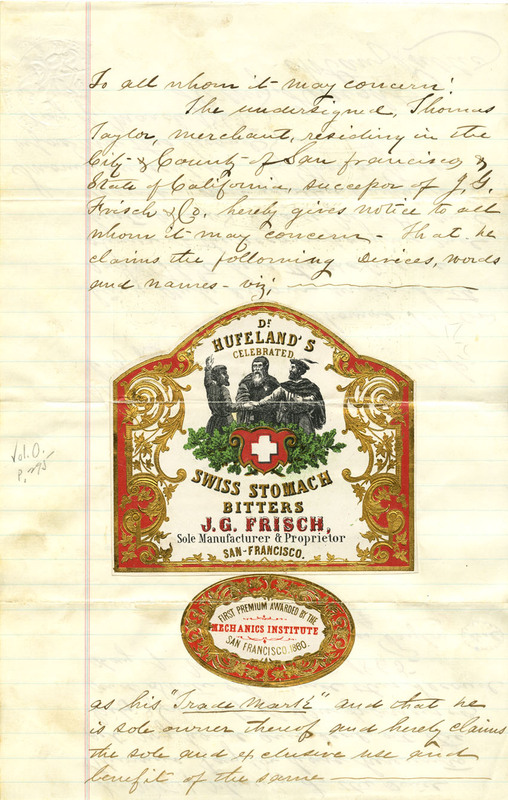 To all whom it may concern:
The undersigned, Thomas
Taylor, merchant, residing in the
City & County of San Francisco, &
State of California, successor of J. G.
Frisch & Co. hereby gives notice to all
whom it may concern - that he
claims the following Devices, words
and names - viz;
Dr
HUFELAND'S
CELEBRATED
SWISS STOMACH
BITTERS
J.G. FRISCH,
Sole Manufacturer & Proprietor
SAN-FRANCISCO.
Vol. O.
p. 295
FIRST PREMIUM AWARDED BY THE
MECHANICS INSTITUTE
SAN FRANCISCO, 1880.
as his "Trade Mark" and that he
is sole owner thereof and hereby claims
the sole and exclusive use and
benefit of the same